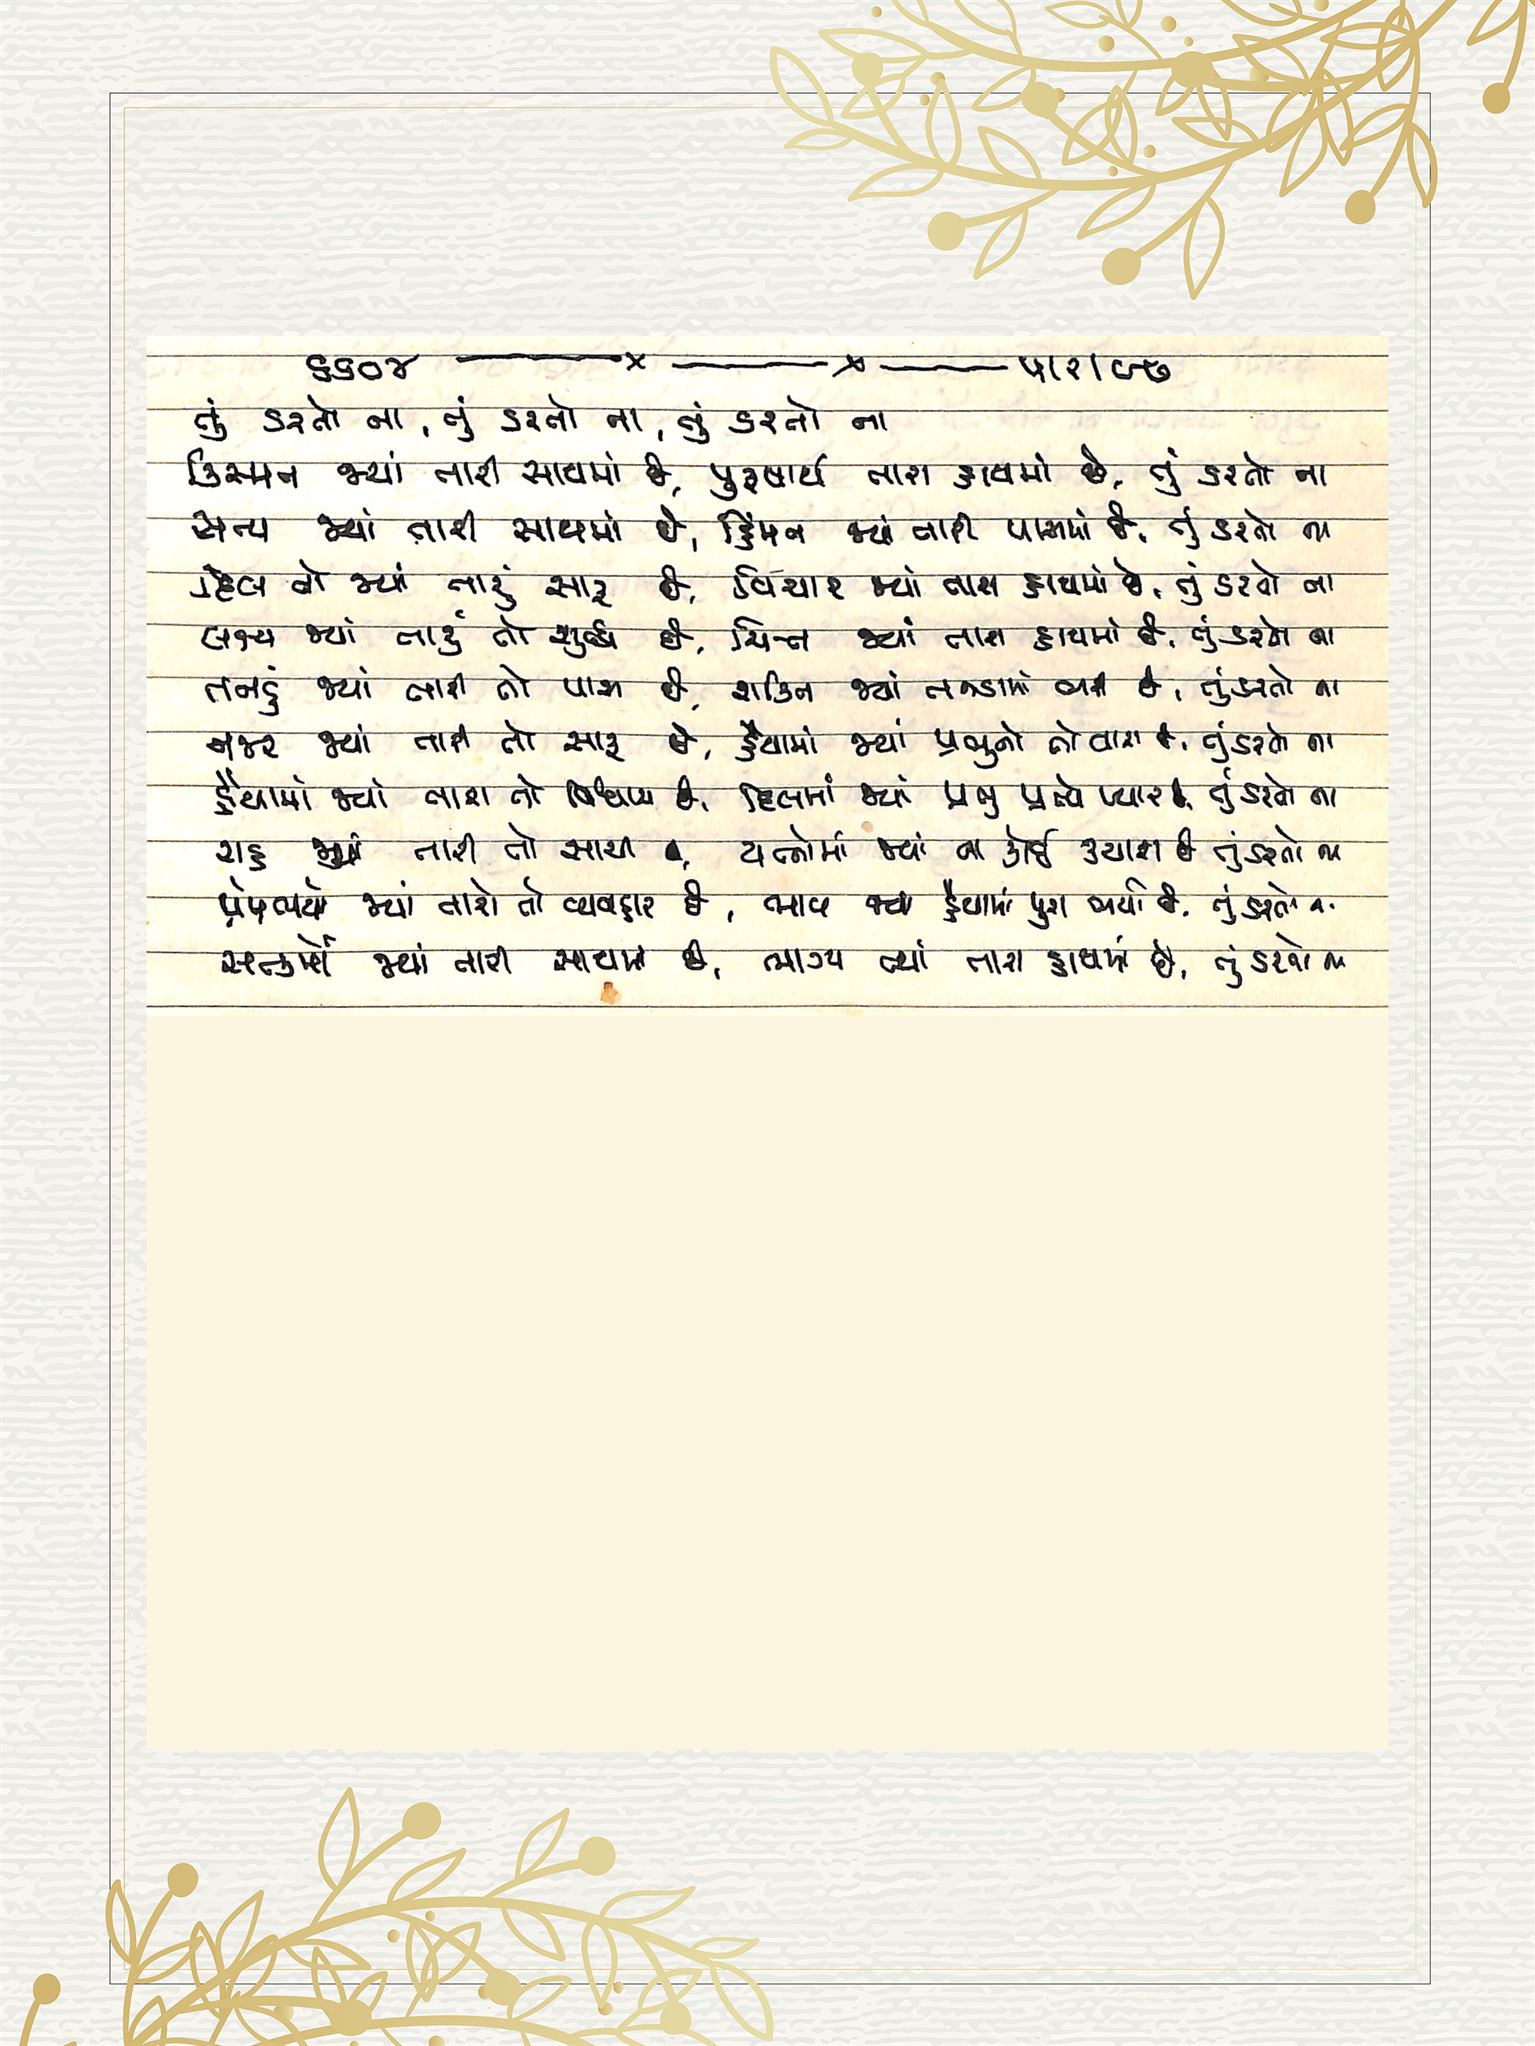 ૬૬૦૪ ———x ———x——— ૫ા૨ા૯૭
તું ડરતો ના, તું ડરતો ના, તું ડરતો ના
કિસ્મત જ્યાં તારી સાથમાં છે, પુરૂષાર્થ તારા હાથમાં છે, તું ડરતો ના
સત્ય જ્યાં તારી સાથમાં છે, હિંમત જ્યાં તારી પાસમાં છે, તું ડરતો ના
દિલ તો જ્યાં તારું સાફ છે, વિચાર જ્યાં તારા હાથમાં છે, તું ડરતો ના
લક્ષ્ય જ્યાં તારું તો શુદ્ધ છે, ચિત્ત જ્યાં તારા હાથમાં છે, તું ડરતો ના
તનદું જ્યાં તારી તો પાસ છે, શક્તિ જ્યાં તનડામાં ભરી છે, તું ડરતો ના
નજર જ્યાં તારી તો સાફ છે, હૈયામાં જ્યાં પ્રભુનો તો વાસ છે, તું ડરતો ના
હૈયામાં જ્યાં તારા તો વિશ્વાસ છે, દિલમાં જ્યાં પ્રભુ પ્રત્યે પ્યાર છે, તું ડરતો ના
રાહ જ્યાં તારી તો સાચી છે, યત્નોમાં જ્યાં ના કોઈ કચાશ છે તું ડરતો ના
પ્રેમભર્યો જ્યાં તારો તો વ્યવહાર છે, ભાવ જ્યાં હૈયામાં પુરા ભર્યા છે, તું ડરતો ના
સત્કર્મો જ્યાં તારી સાથમાં છે, ભાગ્ય ત્યાં તારા હાથમાં છે, તું ડરતો ના